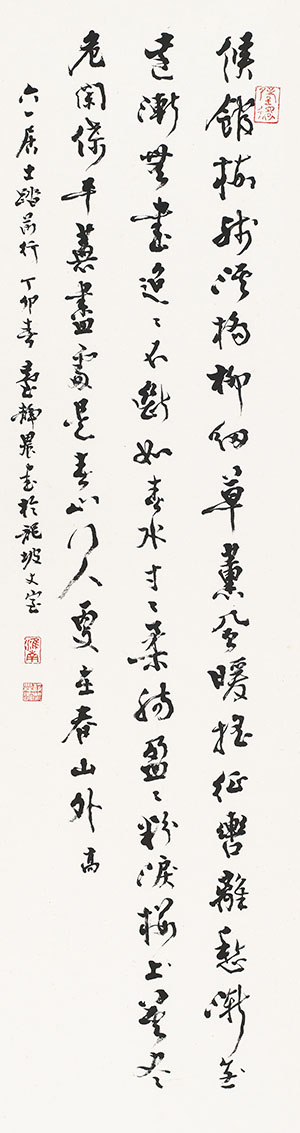 候館梅殘溪橋柳細草薰風暖搖征轡離愁漸
遠漸無迢〻不斷如春水寸〻柔腸盈〻粉淚樓上莫
危闌倚平蕪盡處是春山行人更在春山外 高
六一居士踏莎行 丁卯春 臺靜農書於龍坡丈室